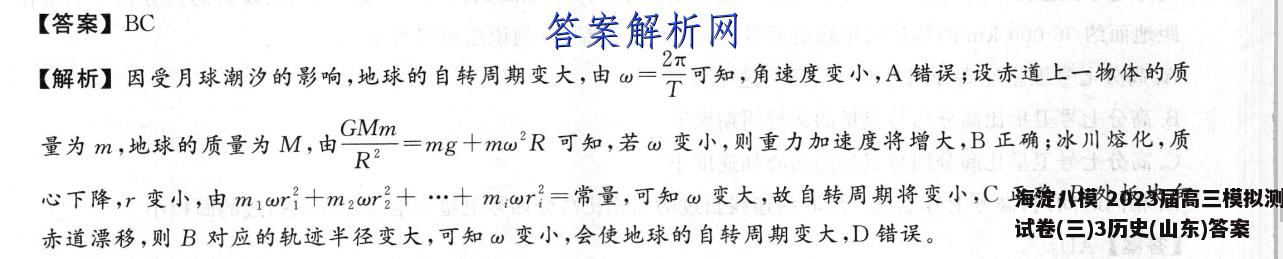 【答案】BC
答案解析网
【解析】因受月球潮汐的影响,地球的自转周期变大,由 ω=2π/T可知,角速度变小,A 错误;设赤道上一物体的质
量为 m,地球的质量为 M,由GMm/R²=mg+mω²R 可知,若 ω 变小,则重力加速度将增大,B 正确;冰川熔化,质
心下降,r 变小,由 m₁ωr₁²+m₂ωr₂²+ ⋯+ mᵢωrᵢ²=常量,可知 ω 变大,故自转周期将变小,C
海淀八模 2023届高三模拟测
赤道漂移,则 B 对应的轨迹半径变大,可知 ω 变小,会使地球的自转周期变大,D 错误。
试卷(三)3历史(山东)答案